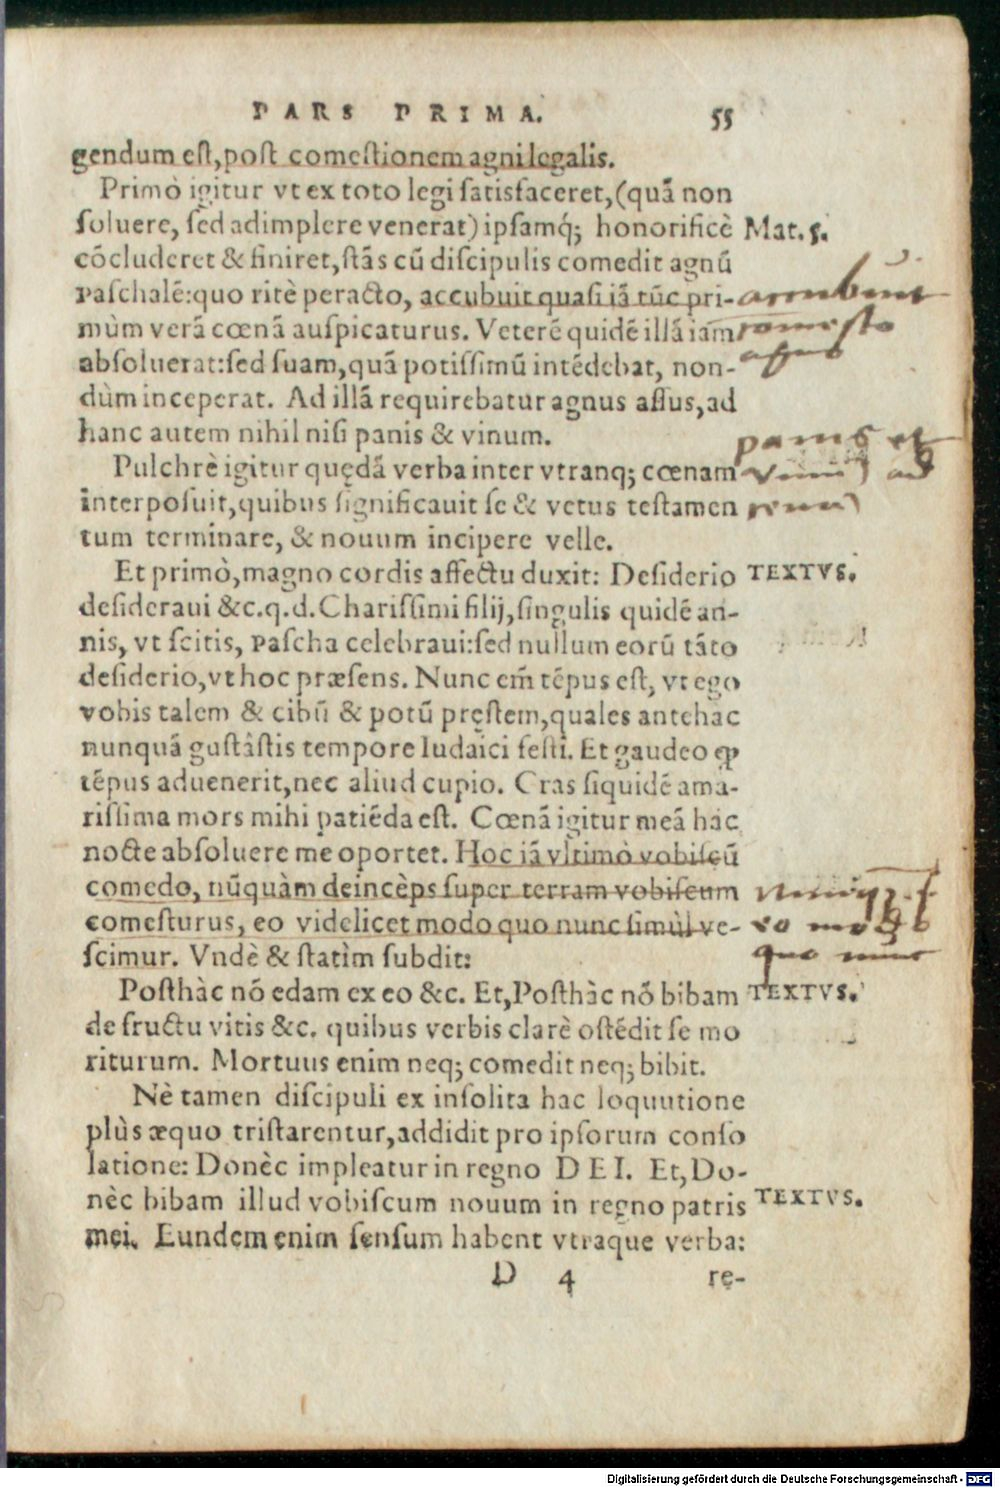 PARS PRIMA. 55
gendum est, post comestionem agni legalis.
Primò igitur vt ex toto legi satisfaceret, (quã non
soluere, sed adimplere venerat) ipsamq́; honorificè Mat. 5.
cõcluderet & finiret, stãs cũ discipulis comedit agnũ
Paschalẽ: quo ritè peracto, accubuit quasi iã tũc pri- accubuit
mùm verã cœnã auspicaturus. Veterẽ quidẽ illã iam comesto
absoluerat: sed suam, quã potissimũ intẽdebat, non-
dùm inceperat. Ad illã requirebatur agnus assus, ad
hanc autem nihil nisi panis & vinum. panis et
Pulchrè igitur quędã verba inter vtranq; cœnam vinũ ad
interposuit, quibus significauit se & vetus testamen
tum terminare, & nouum incipere velle.
Et primò, magno cordis affectu duxit: Desiderio TEXTVS.
desideraui &c. q. d. Charissimi filij, singulis quidẽ an-
nis, vt scitis, Pascha celebraui: sed nullum eorũ tãto
desiderio, vt hoc præsens. Nunc em̃ tẽpus est, vt ego
vobis talem & cibũ & potũ pręstem, quales antehàc
nunquã gustâstis tempore Iudaici festi. Et gaudeo ꝙ
tẽpus aduenerit, nec aliud cupio. Cras siquidẽ ama-
rissima mors mihi patiẽda est. Cœnã igitur meã hàc
nocte absoluere me oportet. Hoc iã vltimò vobiscũ
comedo, nũquàm deincèps super terram vobiscum
comesturus, eo videlicet modo quo nunc simùl ve- eo modo
scimur. Vndè & statìm subdit: quo nunc
Posthàc nõ edam ex eo &c. Et, Posthàc nõ bibam TEXTVS.
de fructu vitis &c. quibus verbis clarè ostẽdit se mo
riturum. Mortuus enim neq; comedit neq; bibit.
Nè tamen discipuli ex insolita hac loquutione
plùs æquo tristarentur, addidit pro ipsorum conso
latione: Donèc impleatur in regno DEI. Et, Do-
nèc bibam illud vobiscum nouum in regno patris TEXTVS.
mei. Eundem enim sensum habent vtraque verba:
D 4 re-
Digitalisierung gefördert durch die Deutsche Forschungsgemeinschaft - DFG